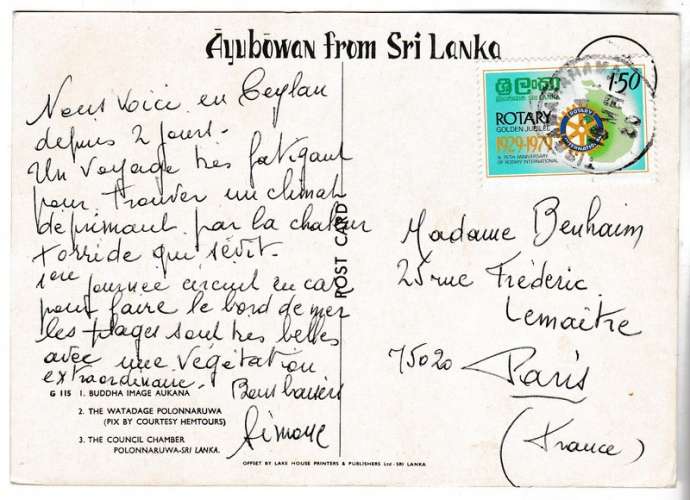 Āyubōwan from Sri Lanka
Nous voici en Ceylan
depuis 2 jours.
Un voyage très fatigant
pour trouver un climat
déprimant par la chaleur
torride qui sévit.
1ère journée circuit en car
pour faire le bord de mer
les plages sont très belles
avec une végétation
extraordinaire.
Bons baisers
Simone
G 115 1. BUDDHA IMAGE AUKANA
2. THE WATADAGE POLONNARUWA
(PIX BY COURTESY HEMTOURS)
3. THE COUNCIL CHAMBER
POLONNARUWA-SRI LANKA.
POST CARD
OFFSET BY LAKE HOUSE PRINTERS & PUBLISHERS Ltd-SRI LANKA
ශ්‍රී ලංකා
SRI LANKA
1.50
ROTARY
GOLDEN JUBILEE
1929-1979
& 75TH ANNIVERSARY
OF ROTARY INTERNATIONAL
ROTARY
INTERNATIONAL
Madame Benhaim
25 rue Fréderic
Lemaître
75020
Paris
(France)